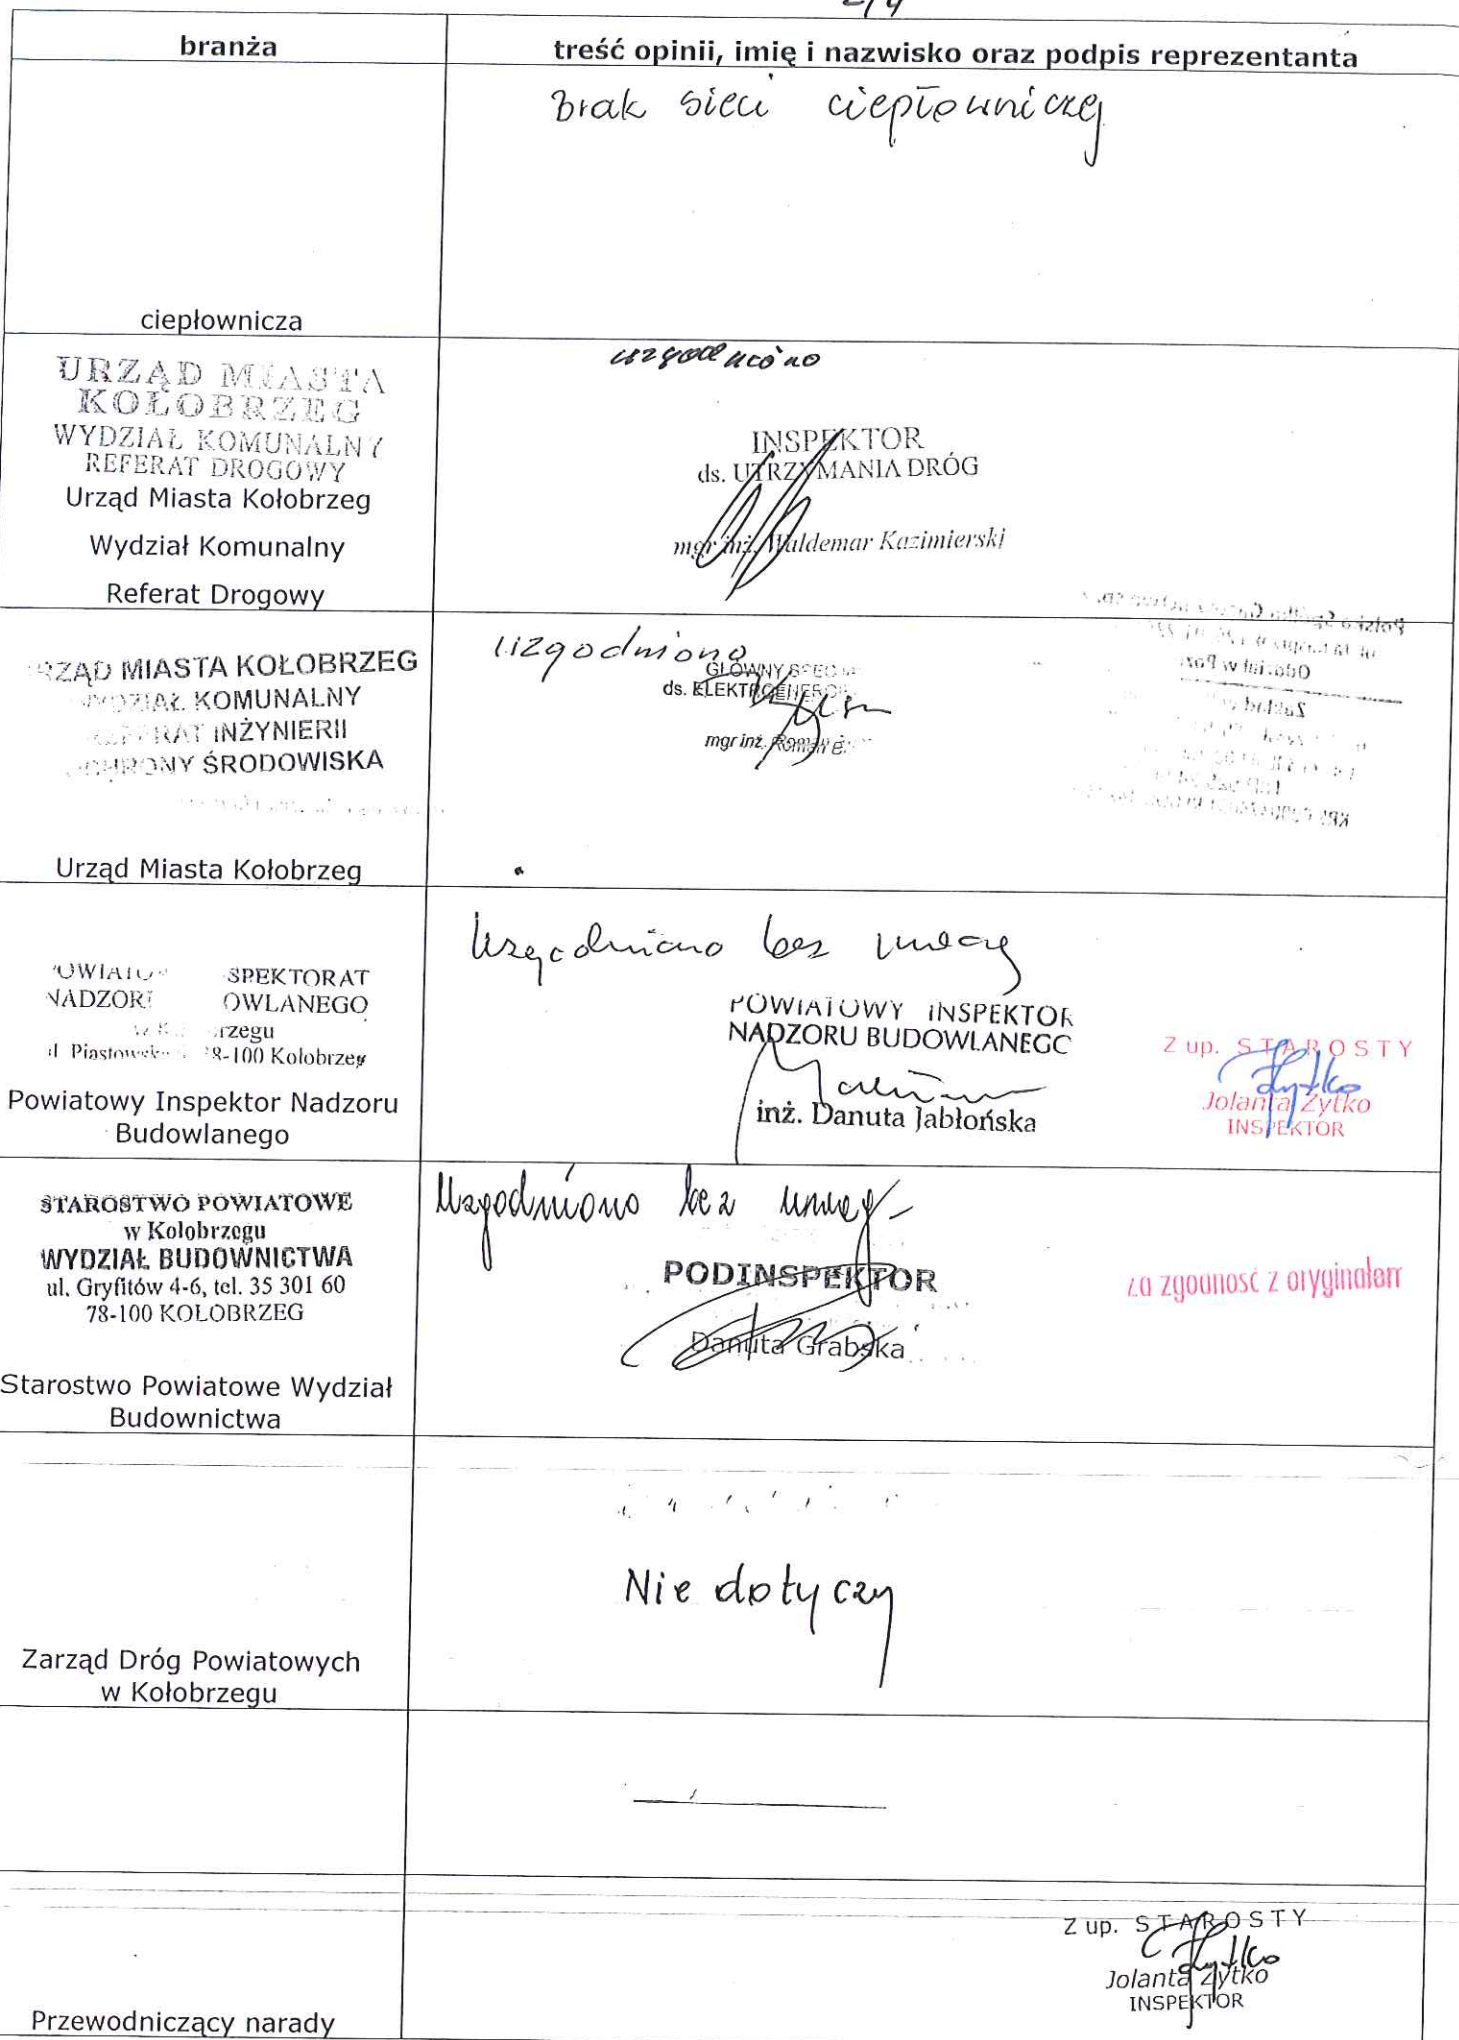 branża
treść opinii, imię i nazwisko oraz podpis reprezentanta
Brak sieci ciepłowniczej
ciepłownicza
URZĄD MIASTA
KOŁOBRZEG
WYDZIAŁ KOMUNALNY
REFERAT DROGOWY
Urząd Miasta Kołobrzeg
Wydział Komunalny
Referat Drogowy
uzgodniono
INSPEKTOR
ds. UTRZYMANIA DRÓG
mgr inż. Waldemar Kazimierski
RZĄD MIASTA KOŁOBRZEG
WYDZIAŁ KOMUNALNY
INŻYNIERII
OCHRONY ŚRODOWISKA
Urząd Miasta Kołobrzeg
uzgodniono
GŁÓWNY SPEC
ds. ELEKTROENERG
mgr inż. Roman
SPEKTORAT
NADZOR OWLANEGO
rzegu
Piastowska 78-100 Kołobrzeg
Powiatowy Inspektor Nadzoru
Budowlanego
Uzgodniono bez uwag
POWIATOWY INSPEKTOR
NADZORU BUDOWLANEGO
inż. Danuta Jabłońska
Z up. STAROSTY
Jolanta Żytko
INSPEKTOR
STAROSTWO POWIATOWE
w Kołobrzegu
WYDZIAŁ BUDOWNICTWA
ul. Gryfitów 4-6, tel. 35 301 60
78-100 KOŁOBRZEG
Starostwo Powiatowe Wydział
Budownictwa
Uzgodniono bez uwag
PODINSPEKTOR
Danuta Grabska
za zgodność z oryginałem
Zarząd Dróg Powiatowych
w Kołobrzegu
Nie dotyczy
Przewodniczący narady
Z up. STAROSTY
Jolanta Żytko
INSPEKTOR